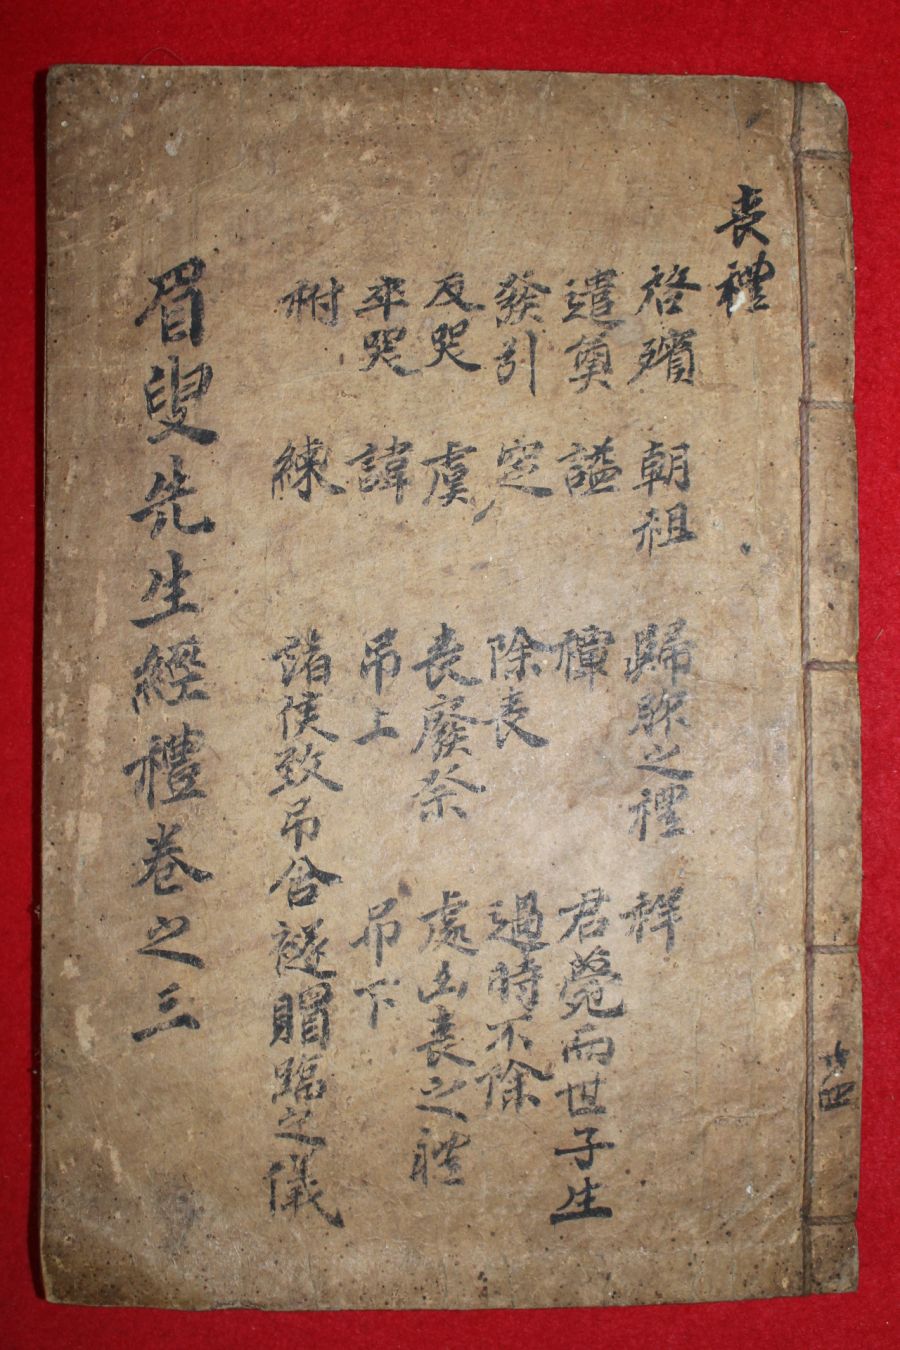 喪禮
啓殯 朝祖 歸脤之禮 祥
遣奠 諡 禫 君薨而世子生
發引 窆 除喪 過時不除
反哭 虞 喪廢祭 處凶喪之禮
卒哭 諱 吊上 吊下
祔 練 諸侯致吊含襚賵臨之儀
眉叟先生經禮卷之三
共四